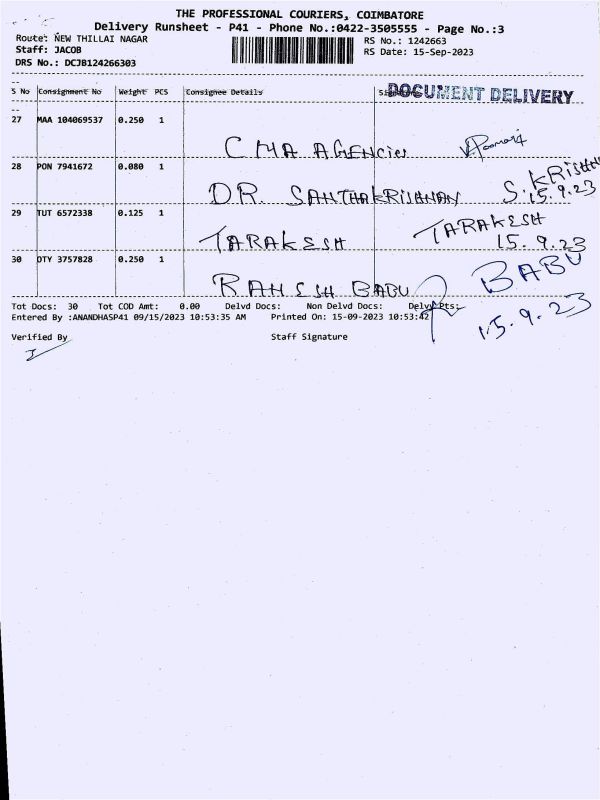 THE PROFESSIONAL COURIERS, COIMBATORE
Delivery Runsheet - P41 - Phone No.:0422-3505555 - Page No.:3
Route: NEW THILLAI NAGAR
RS No.: 1242663
Staff: JACOB
RS Date: 15-Sep-2023
DRS No.: DCJB124266303
S No Consignment No Weight PCS Consignee Details
DOCUMENT DELIVERY
27 MAA 104069537 0.250 1
CMA AGENCies
28 PON 7941672 0.080 1
DR. SANTHAKRISHNAN S. KRISHN
15.9.23
29 TUT 6572338 0.125 1
TARAKESH TARAKESH
15.9.23
30 OTY 3757828 0.250 1
RAMESH BABU BABU
15.9.23
Tot Docs: 30 Tot COD Amt: 0.00 Delvd Docs: Non Delvd Docs: Delvy Pts:
Entered By :ANANDHASP41 09/15/2023 10:53:35 AM Printed On: 15-09-2023 10:53:42
Verified By Staff Signature